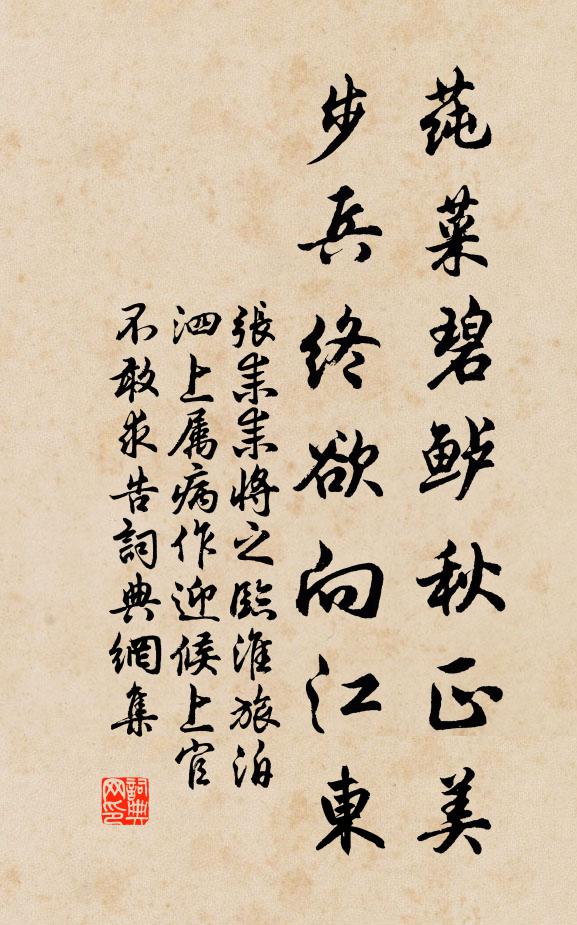 莼菜碧鲈秋正美
步兵终欲向江東
張耒耒將之臨淮旅泊
泗上属病作迎候上官
不敢求告詞典網集
詞典网印